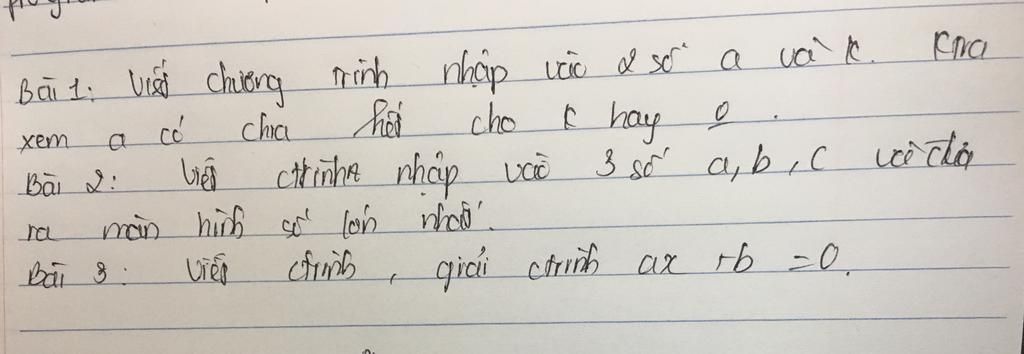 Bài 1: Viết chương trình nhập vào 2 số a và k. Ktra
xem a có chia hết cho k hay 0.
Bài 2: Viết ctrình nhập vào 3 số a, b, c và
ra màn hình số lớn nhất.
Bài 3: Viết ctrình, giải ctrình ax + b = 0.